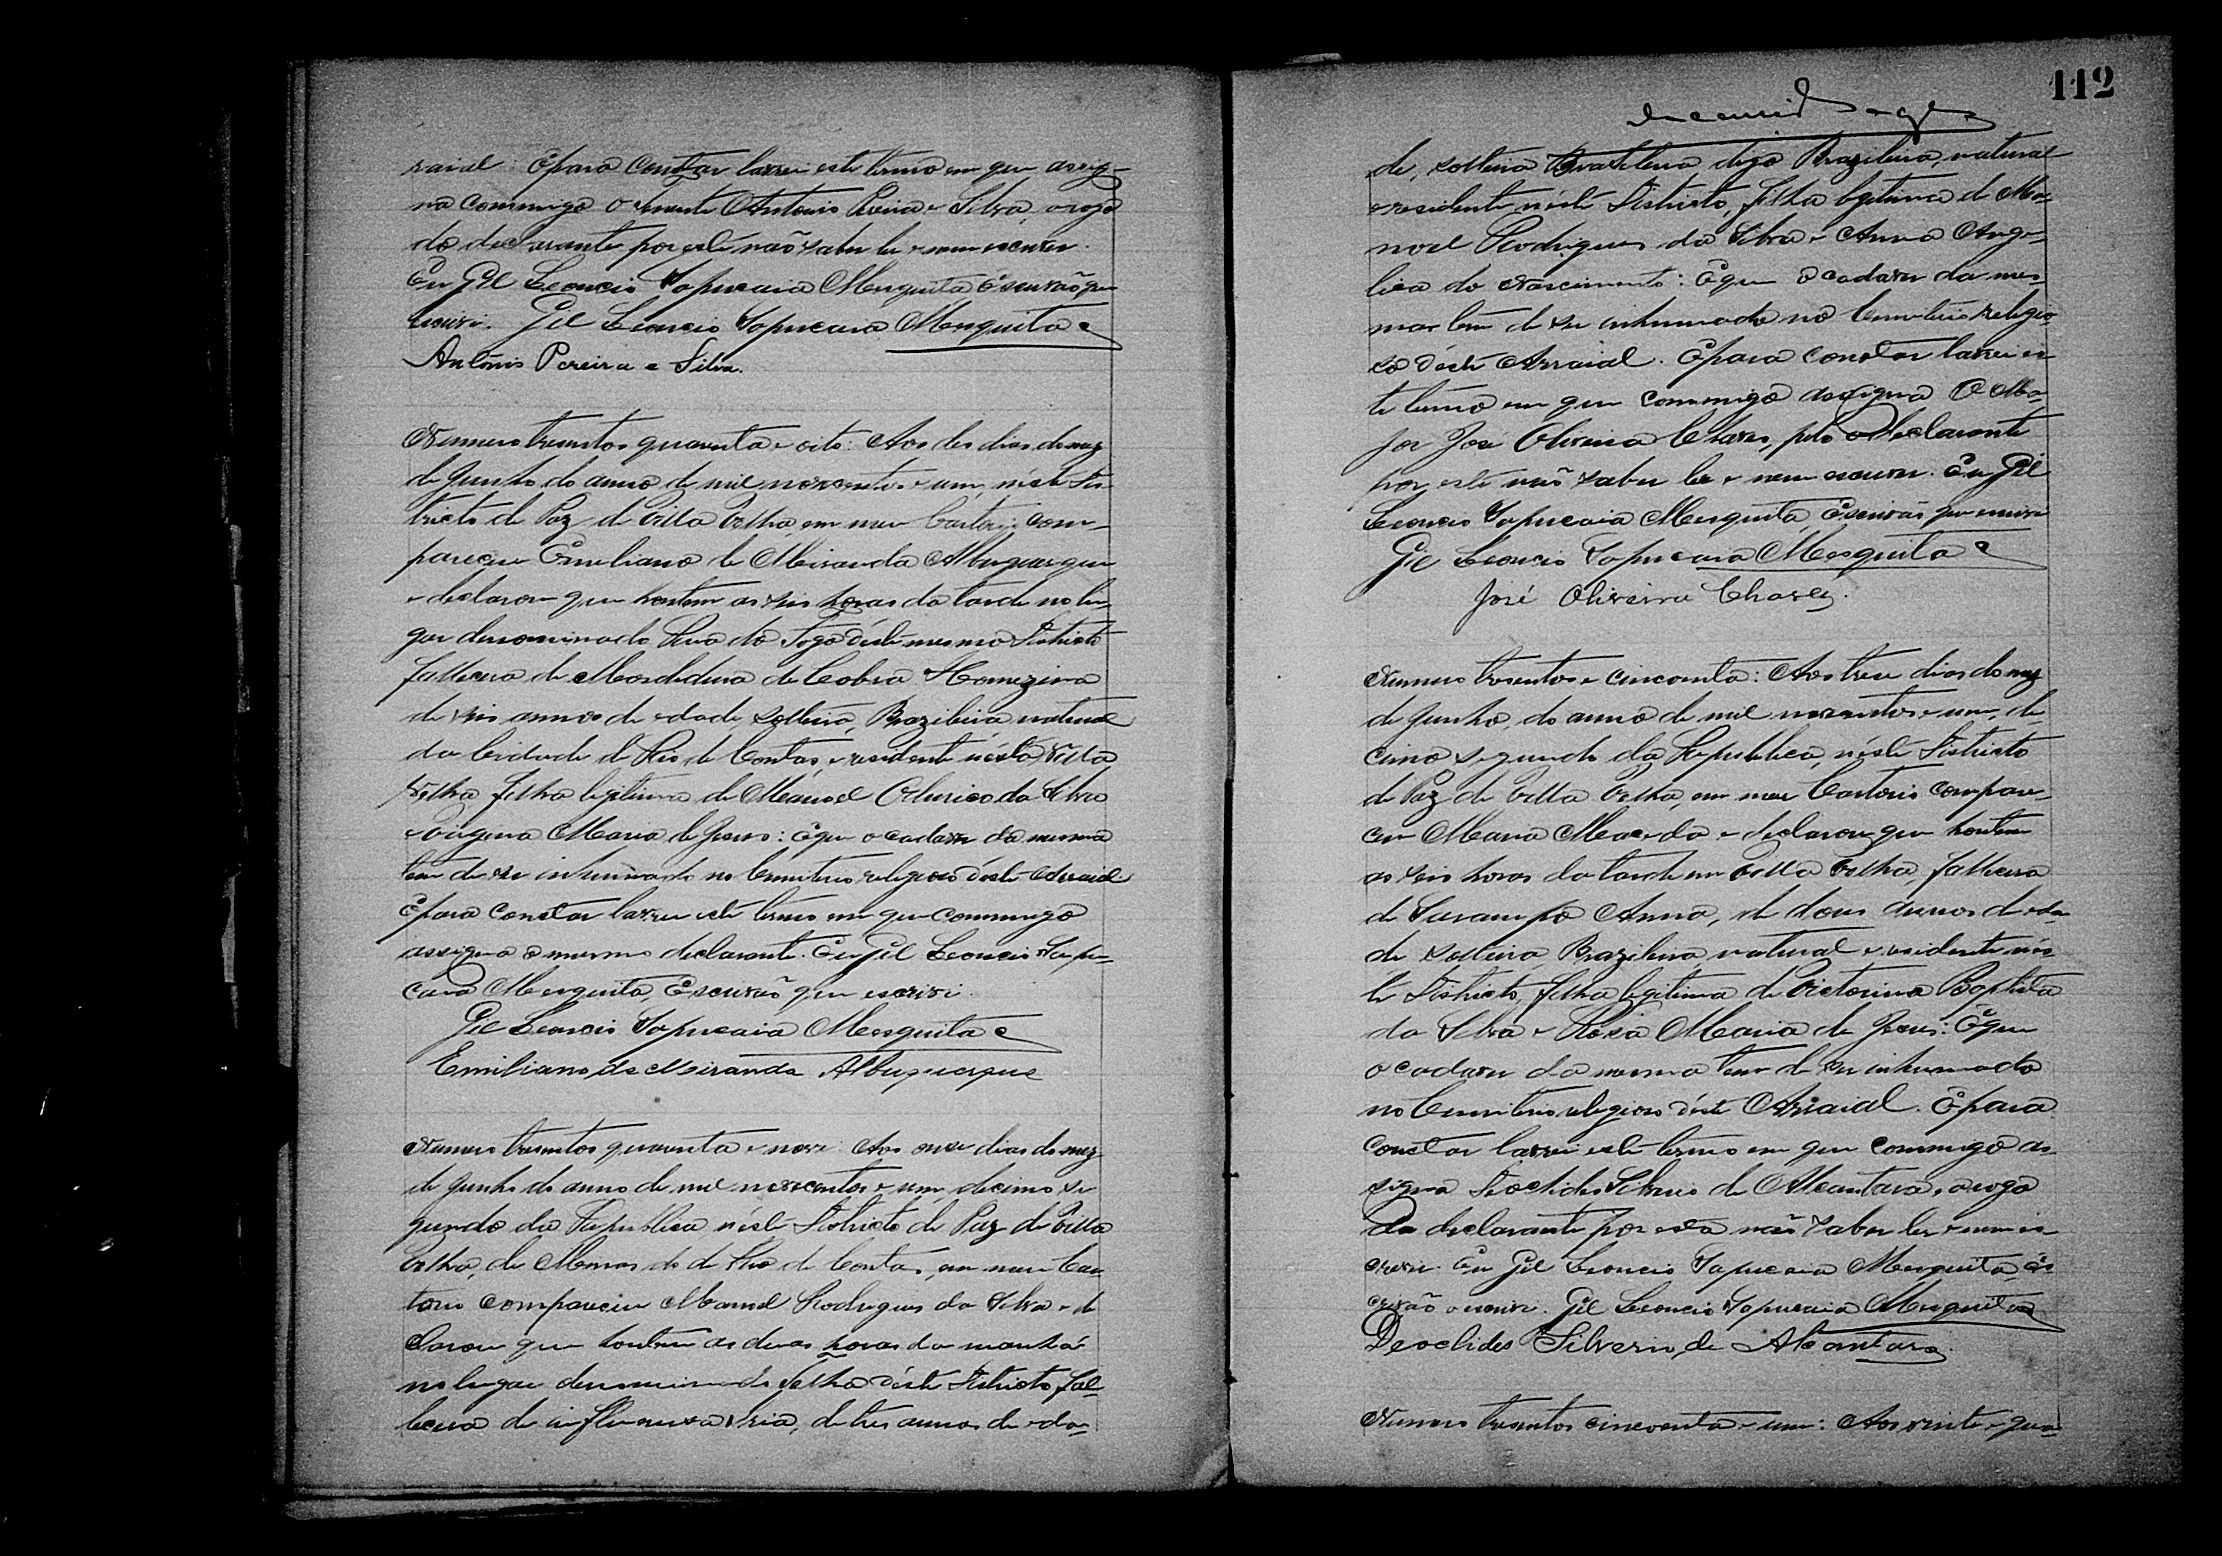 raial. E para constar lavrei este termo em que assig-
na commigo o Tenente Antonio Pereira e Silva, a rogo
do declarante por este não saber ler e nem escrever.
Eu Gil Leoncio Sapucaia Mesquita Escrivão que
escrevi. Gil Leoncio Sapucaia Mesquita
Antônio Pereira e Silva.
Numero tresentos quarenta e oito: Aos des dias do mez
de Junho do anno de mil novecentos e um, néste Dis-
tricto de Paz de Villa Velha, em meu Cartorio com-
pareceu Emiliano de Miranda Albuquerque
e declarou que hontem as seis horas da tarde no lu-
gar denominado déste mesmo Districto
fallecera de Mordedura de Cobra
de seis annos de edade solteira, Brazileira, natural
da Cidade de Rio de Contas, e residente nésta Villa
Velha, filha legitima de Manoel da Silva
e Maria de Jesus: E que o cadaver da mesma
tem de ser inhumado no Cemiterio religioso déste Arraial
E para constar lavrei este termo em que commigo
assigna o mesmo declarante. Eu Gil Leoncio Sapu-
caia Mesquita, Escrivão que escrevi.
Gil Leoncio Sapucaia Mesquita
Emiliano de Miranda Albuquerque
Numero tresentos quarenta e nove: Aos onse dias do mez
de Junho do anno de mil novecentos e um, decimo se-
gundo da Republica, néste Districto de Paz de Villa
Velha, de Minas do de Rio de Contas, em meu Car-
torio compareceu Manoel Rodrigues da Silva e de-
clarou que hontem as duas horas da manhã
no lugar denominado déste Districto, fal-
lecera de influensa de tres annos de eda-
112
de, solteira Brasileira digo Brazileira, natural
e residente néste Districto, filha legitima de Ma-
noel Rodrigues da Silva e Anna Ange-
lica do Nascimento: E que o cadaver da mes-
ma tem de ser inhumado no Cemiterio religio-
so déste Arraial. E para constar lavrei es-
te termo em que commigo assigna O Ma-
jor José Oliveira Chaves, pelo declarante
por este não saber ler e nem escrever. Eu Gil
Leoncio Sapucaia Mesquita, Escrivão que escrevi
Gil Leoncio Sapucaia Mesquita
José Oliveira Chaves.
Numero tresentos e cincoenta: Aos trese dias do mez
de Junho, do anno de mil novecentos e um, de-
cimo segundo da Republica, néste Districto
de Paz de Villa Velha, em meu Cartorio compare-
ceu Maria Macedo e declarou que hontem
as seis horas da tarde em Villa Velha, fallecera
de Sarampo Anna, de dous annos de eda-
de solteira, Brazileira natural e residente nés-
te Districto, filha legitima de Victorino Baptista
da Silva e Rosa Maria de Jesus: E que
o cadaver da mesma tem de ser inhumado
no Cemiterio religioso déste Arraial. E para
constar lavrei este termo em que commigo as-
signa Deoclides Silverio de Alcantara, a rogo
da declarante por esta não saber ler e nem es-
crever. Eu Gil Leoncio Sapucaia Mesquita, Es-
crivão o escrevi. Gil Leoncio Sapucaia Mesquita
Deoclides Silverio de Alcantara.
Numero tresentos cincoenta e um: Aos vinte e qua-